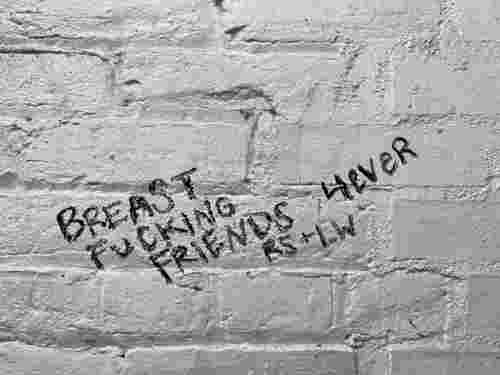 BREAST
FUCKING
FRIENDS 4EVER
RS + LW